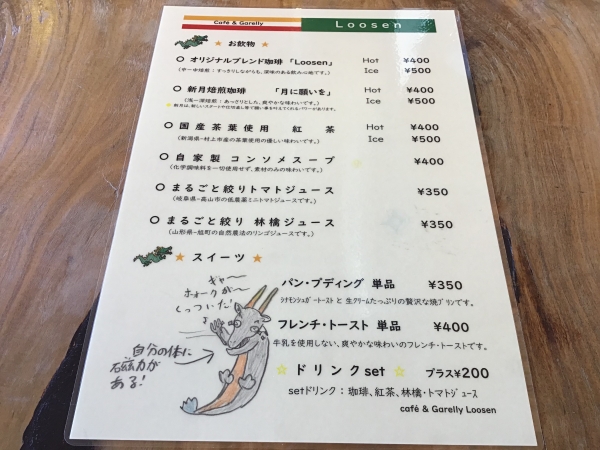 Café & Garelly
Loosen
★ お飲物 ★
○ オリジナルブレンド珈琲 「Loosen」 Hot ¥400
(中ー中焙煎：すっきりしながらも、深味のある飲み心地です。) Ice ¥500
○ 新月焙煎珈琲 「月に願いを」 Hot ¥400
(浅ー深焙煎：あっさりとした、爽やかな味わいです。) Ice ¥500
○ 国産茶葉使用 紅 茶 Hot ¥400
(新潟県-村上市産の茶葉使用の優しい味わいです。) Ice ¥500
○ 自家製 コンソメスープ ¥400
(化学調味料を一切使用せず、素材のみの味わいです。)
○ まるごと絞りトマトジュース ¥350
(岐阜県-高山市の低農薬ミニトマトジュースです。)
○ まるごと絞り 林檎ジュース ¥350
(山形県-旭町の自然農法のリンゴジュースです。)
★ スイーツ ★
パン・プディング 単品 ¥350
シナモンシュガートーストと生クリームたっぷりの贅沢な焼プリンです。
フレンチ・トースト 単品 ¥400
牛乳を使用しない、爽やかな味わいのフレンチ・トーストです。
☆ ドリンクset ☆ プラス¥200
setドリンク：珈琲、紅茶、林檎・トマトジュース
café & Garelly Loosen
ギャー
フォークが〜
くっついた!
自分の体に
石磁力が
ある!